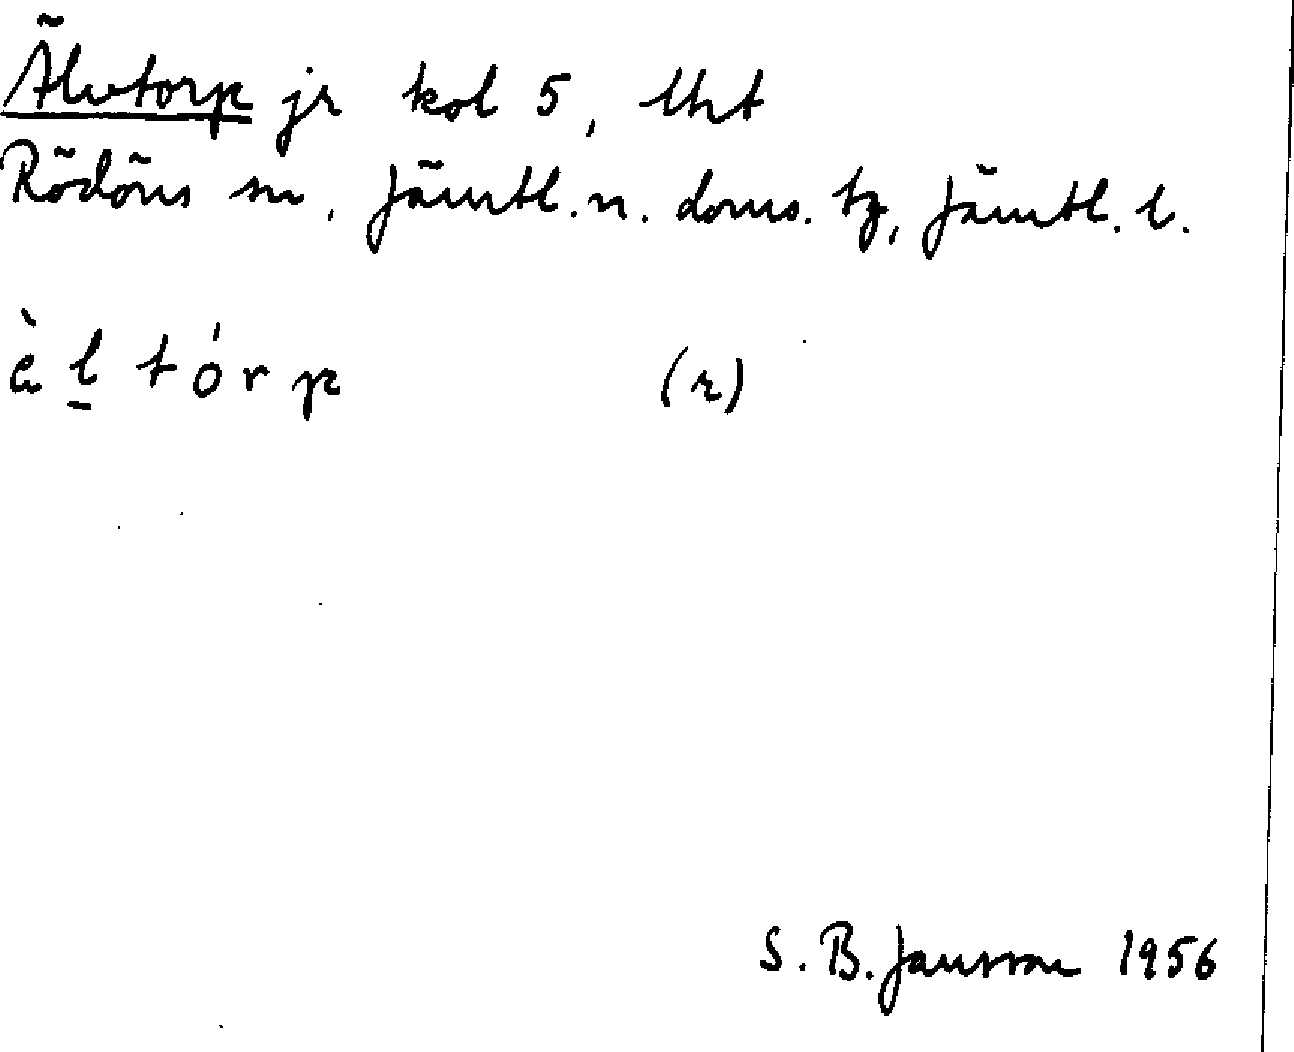 Älvtorp jr kol 5, lht
Rödöns sn, Jämtl. n. doms. tg, Jämtl. l.
è l̠ t ó r p (r)
S. B. Jansson 1956